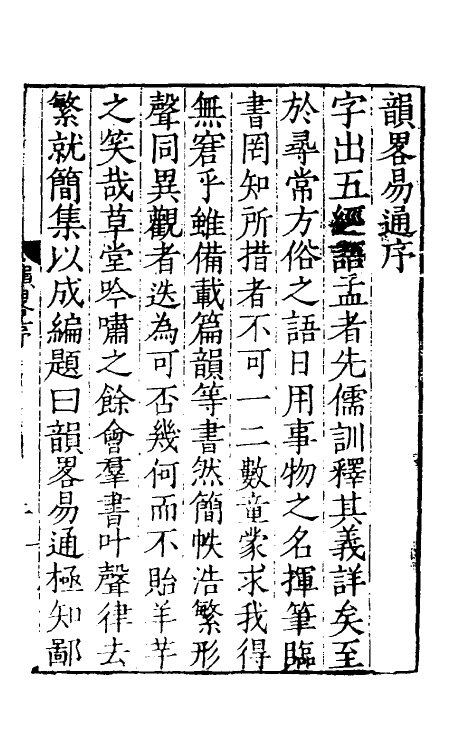 韻畧易通序
字出五經語孟者先儒訓釋其義詳矣至
於尋常方俗之語日用事物之名揮筆臨
書罔知所措者不可一二數童蒙求我得
無窘乎雖備載篇韻等書然簡帙浩繁形
聲同異觀者迭為可否幾何而不貽羊芋
之笑哉草堂吟嘯之餘會羣書叶聲律去
繁就簡集以成編題曰韻畧易通極知鄙
韻畧序